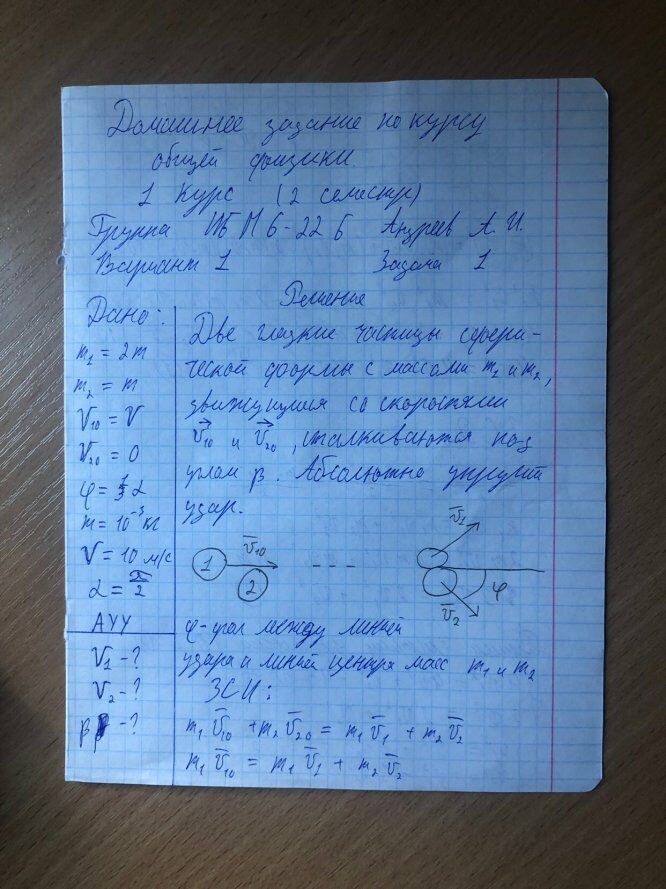 Домашнее задание по курсу
общей физики.
1 Курс (2 семестр)
Группа ИБМ 6-22 Б Андреев А. И.
Вариант 1 Задача 1
Решение
Дано:
m₁ = 2m
m₂ = m
V₁₀ = V
V₂₀ = 0
φ = 1/3 α
m = 10⁻³ кг
V = 10 м/с
α = π/2
АУУ
V₁ - ?
V₂ - ?
β - ?
Две гладкие частицы сфери-
ческой формы с массами m₁ и m₂,
движущиеся со скоростями
V̅₁₀ и V̅₂₀, сталкиваются под
углом β. Абсолютно упругий
удар.
1 v̅₁₀ 2 - - - v̅₁ φ v̅₂
φ - угол между линией
удара и линией центра масс m₁ и m₂
ЗСИ:
m₁ v̅₁₀ + m₂ v̅₂₀ = m₁ v̅₁ + m₂ v̅₂
m₁ v̅₁₀ = m₁ v̅₁ + m₂ v̅₂